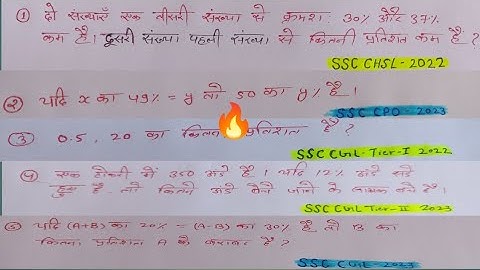 ① दो संख्याएँ एक तीसरी संख्या से क्रमश: 30% और 37%
कम है। दूसरी संख्या पहली संख्या से कितनी प्रतिशत कम है ?
SSC CHSL - 2022
② यदि x का 49% = y तो 50 का y% है।
SSC CPO - 2023
③ 0.5, 20 का कितना प्रतिशत है ?
SSC CGL - Tier-I 2022
④ एक टोकरी में 350 अंडे है। यदि 12% अंडे सड़े
हुए है तो कितने अंडे बेचे जाने के लायक बचे है।
SSC CGL Tier-II 2023
⑤ यदि (A+B) का 20% = (A-B) का 30% है तो B का
कितना प्रतिशत A के बराबर है ?
SSC 2023